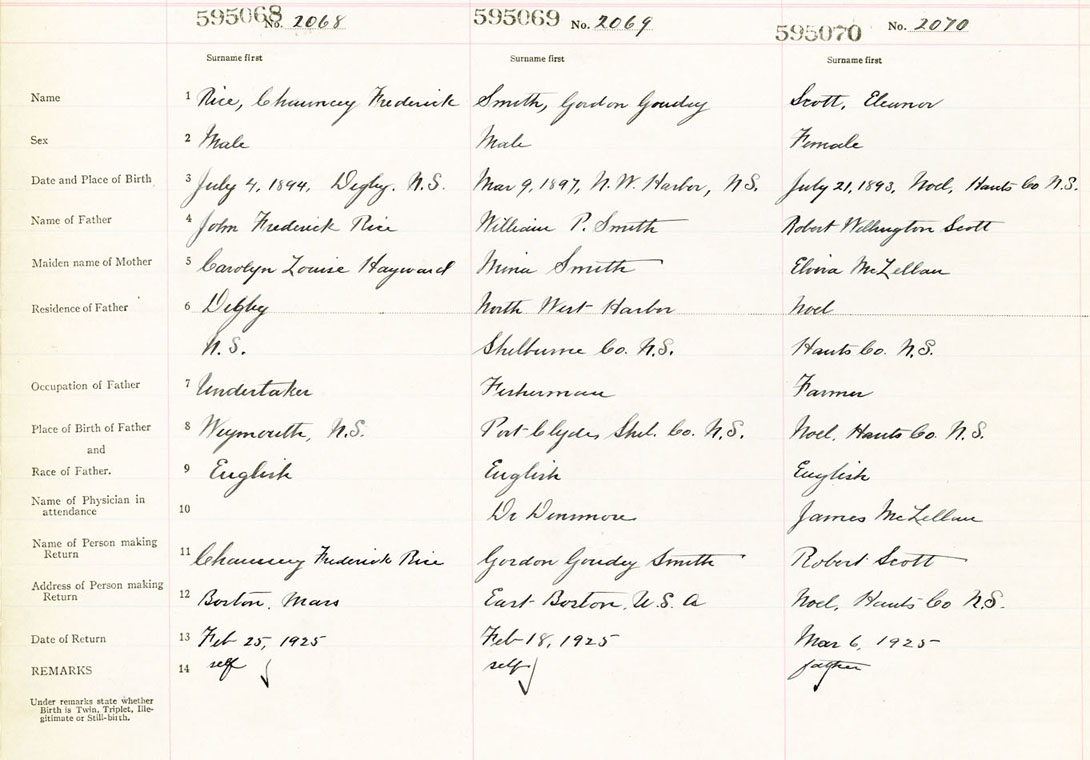 595068 No. 2068 595069 No. 2069 595070 No. 2070
Surname first Surname first Surname first
Name 1 Rice, Chauncey Frederick Smith, Gordon Goudey Scott, Eleanor
Sex 2 Male Male Female
Date and Place of Birth 3 July 4, 1894, Digby. N.S. Mar 9, 1897, N.W. Harbor, N.S. July 21, 1893, Noel, Hants Co N.S.
Name of Father 4 John Frederick Rice William P. Smith Robert Wellington Scott
Maiden name of Mother 5 Carolyn Louise Hayward Mina Smith Elvira McLellan
Residence of Father 6 Digby North West Harbor Noel
N.S. Shelburne Co. N.S. Hants Co. N.S.
Occupation of Father 7 Undertaker Fisherman Farmer
Place of Birth of Father 8 Weymouth, N.S. Port Clyde, Shel. Co. N.S. Noel, Hants Co. N.S.
and
Race of Father. 9 English English English
Name of Physician in
attendance 10 Dr Densmore James McLellan
Name of Person making
Return 11 Chauncey Frederick Rice Gordon Goudey Smith Robert Scott
Address of Person making
Return 12 Boston, Mass East Boston, U.S.A Noel, Hants Co N.S.
Date of Return 13 Feb 25, 1925 Feb 18, 1925 Mar 6, 1925
REMARKS 14 self self father
Under remarks state whether
Birth is Twin, Triplet, Ille-
gitimate or Still-birth.